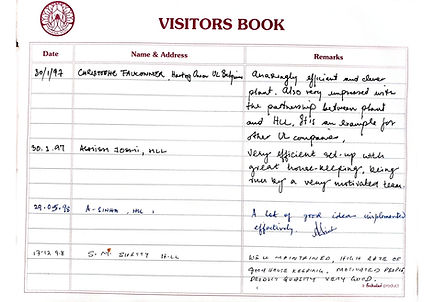 VISITORS BOOK
Date Name & Address Remarks
30/1/97 CHRISTOPHE FALCONNIER, Amazingly efficient and clever
plant. Also very impressed with
the partnership between plant
and HLL. It is an example for
other UL companies.
30.1.97 ASHISH JOSHI, HLL very efficient set-up with
great house-keeping, being
run by a very motivated team.
A. SINHA, HLL A lot of good ideas implemented
effectively.
S. M. SHETTY HLL WELL MAINTAINED, HIGH RATE OF
GOOD HOUSE KEEPING, MOTIVATED PEOPLE,
PRODUCT QUALITY VERY GOOD.
PRODUCT